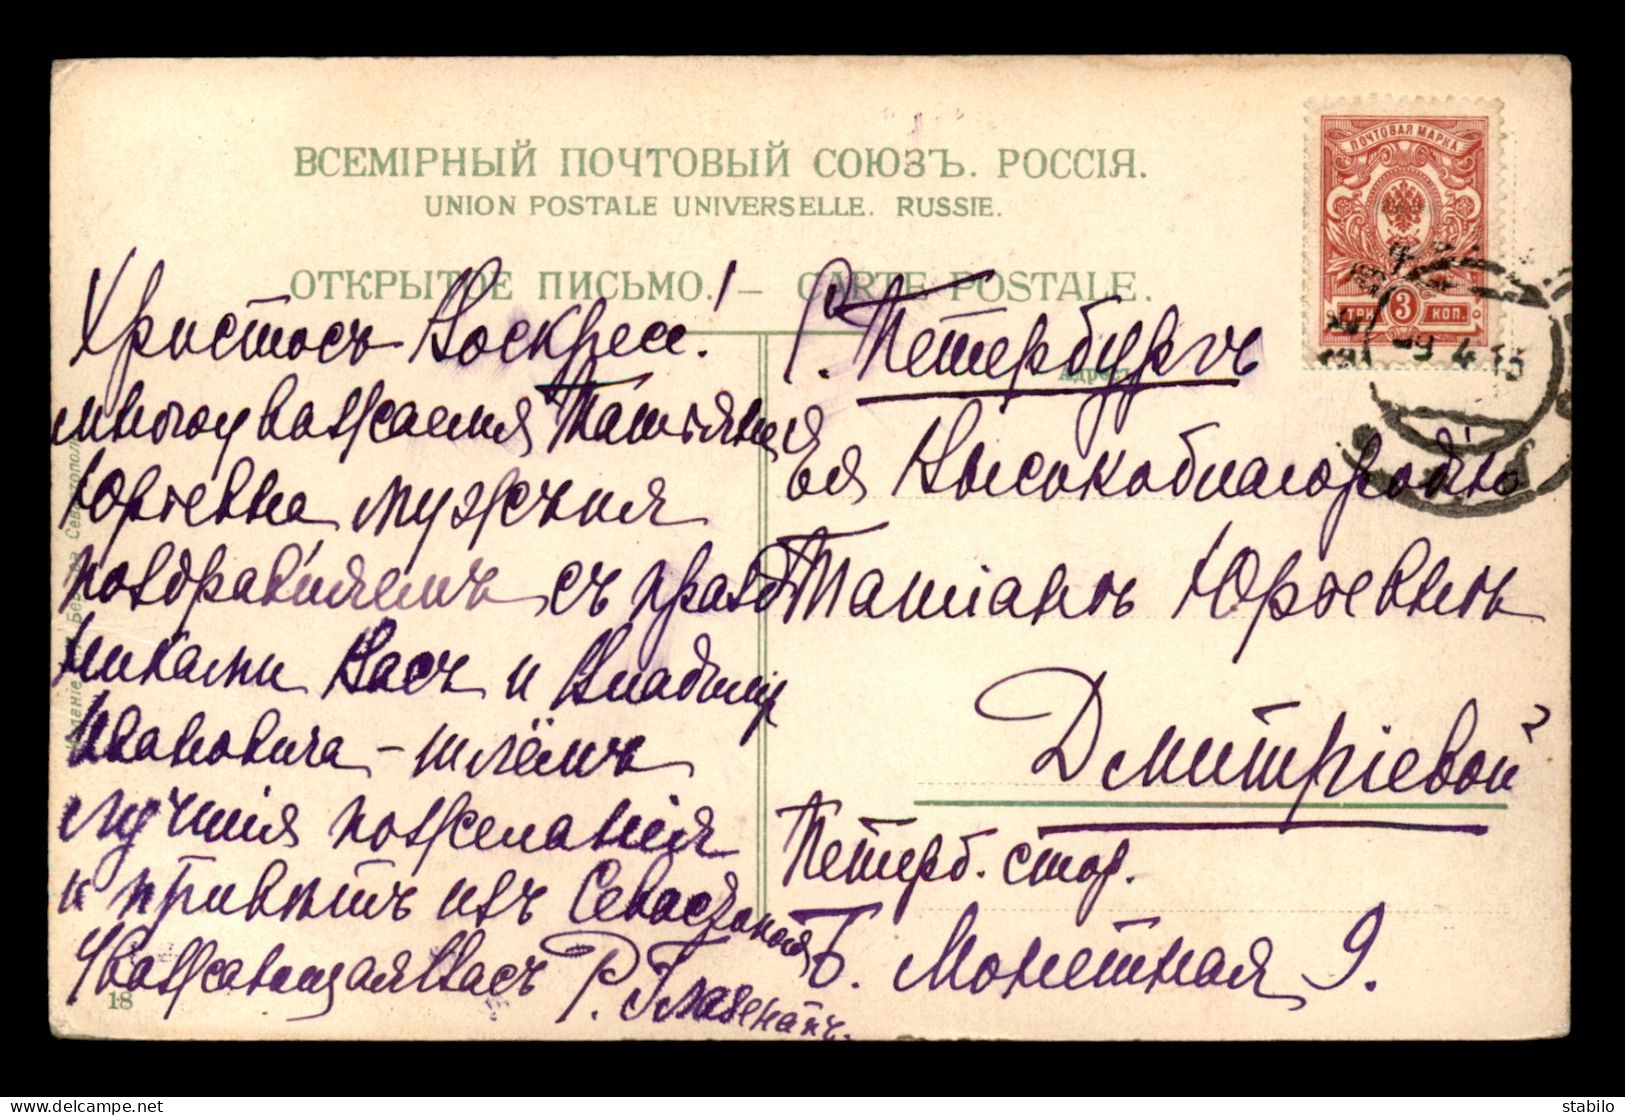 ВСЕМІРНЫЙ ПОЧТОВЫЙ СОЮЗЪ. РОССІЯ.
UNION POSTALE UNIVERSELLE. RUSSIE.
ОТКРЫТОЕ ПИСЬМО. — CARTE POSTALE.
ПОЧТОВАЯ МАРКА
3 КОП.
9 4
Христосъ Воскресе!
многоуважаемая Татьяна
Юрьевна
поздравляемъ съ празд
никами Васъ и Владимір
Ивановича – шлёмъ
лучшія пожеланія
и привѣтъ изъ Севастополя
Уважающая Васъ Р.
18
Адресъ
Г. Петербургъ
Ея Высокоблагородію
Татіанѣ Юрьевнѣ
Дмитріевой
Петерб. стор.
Б. Монетная 9.
Севастополь
stabilo